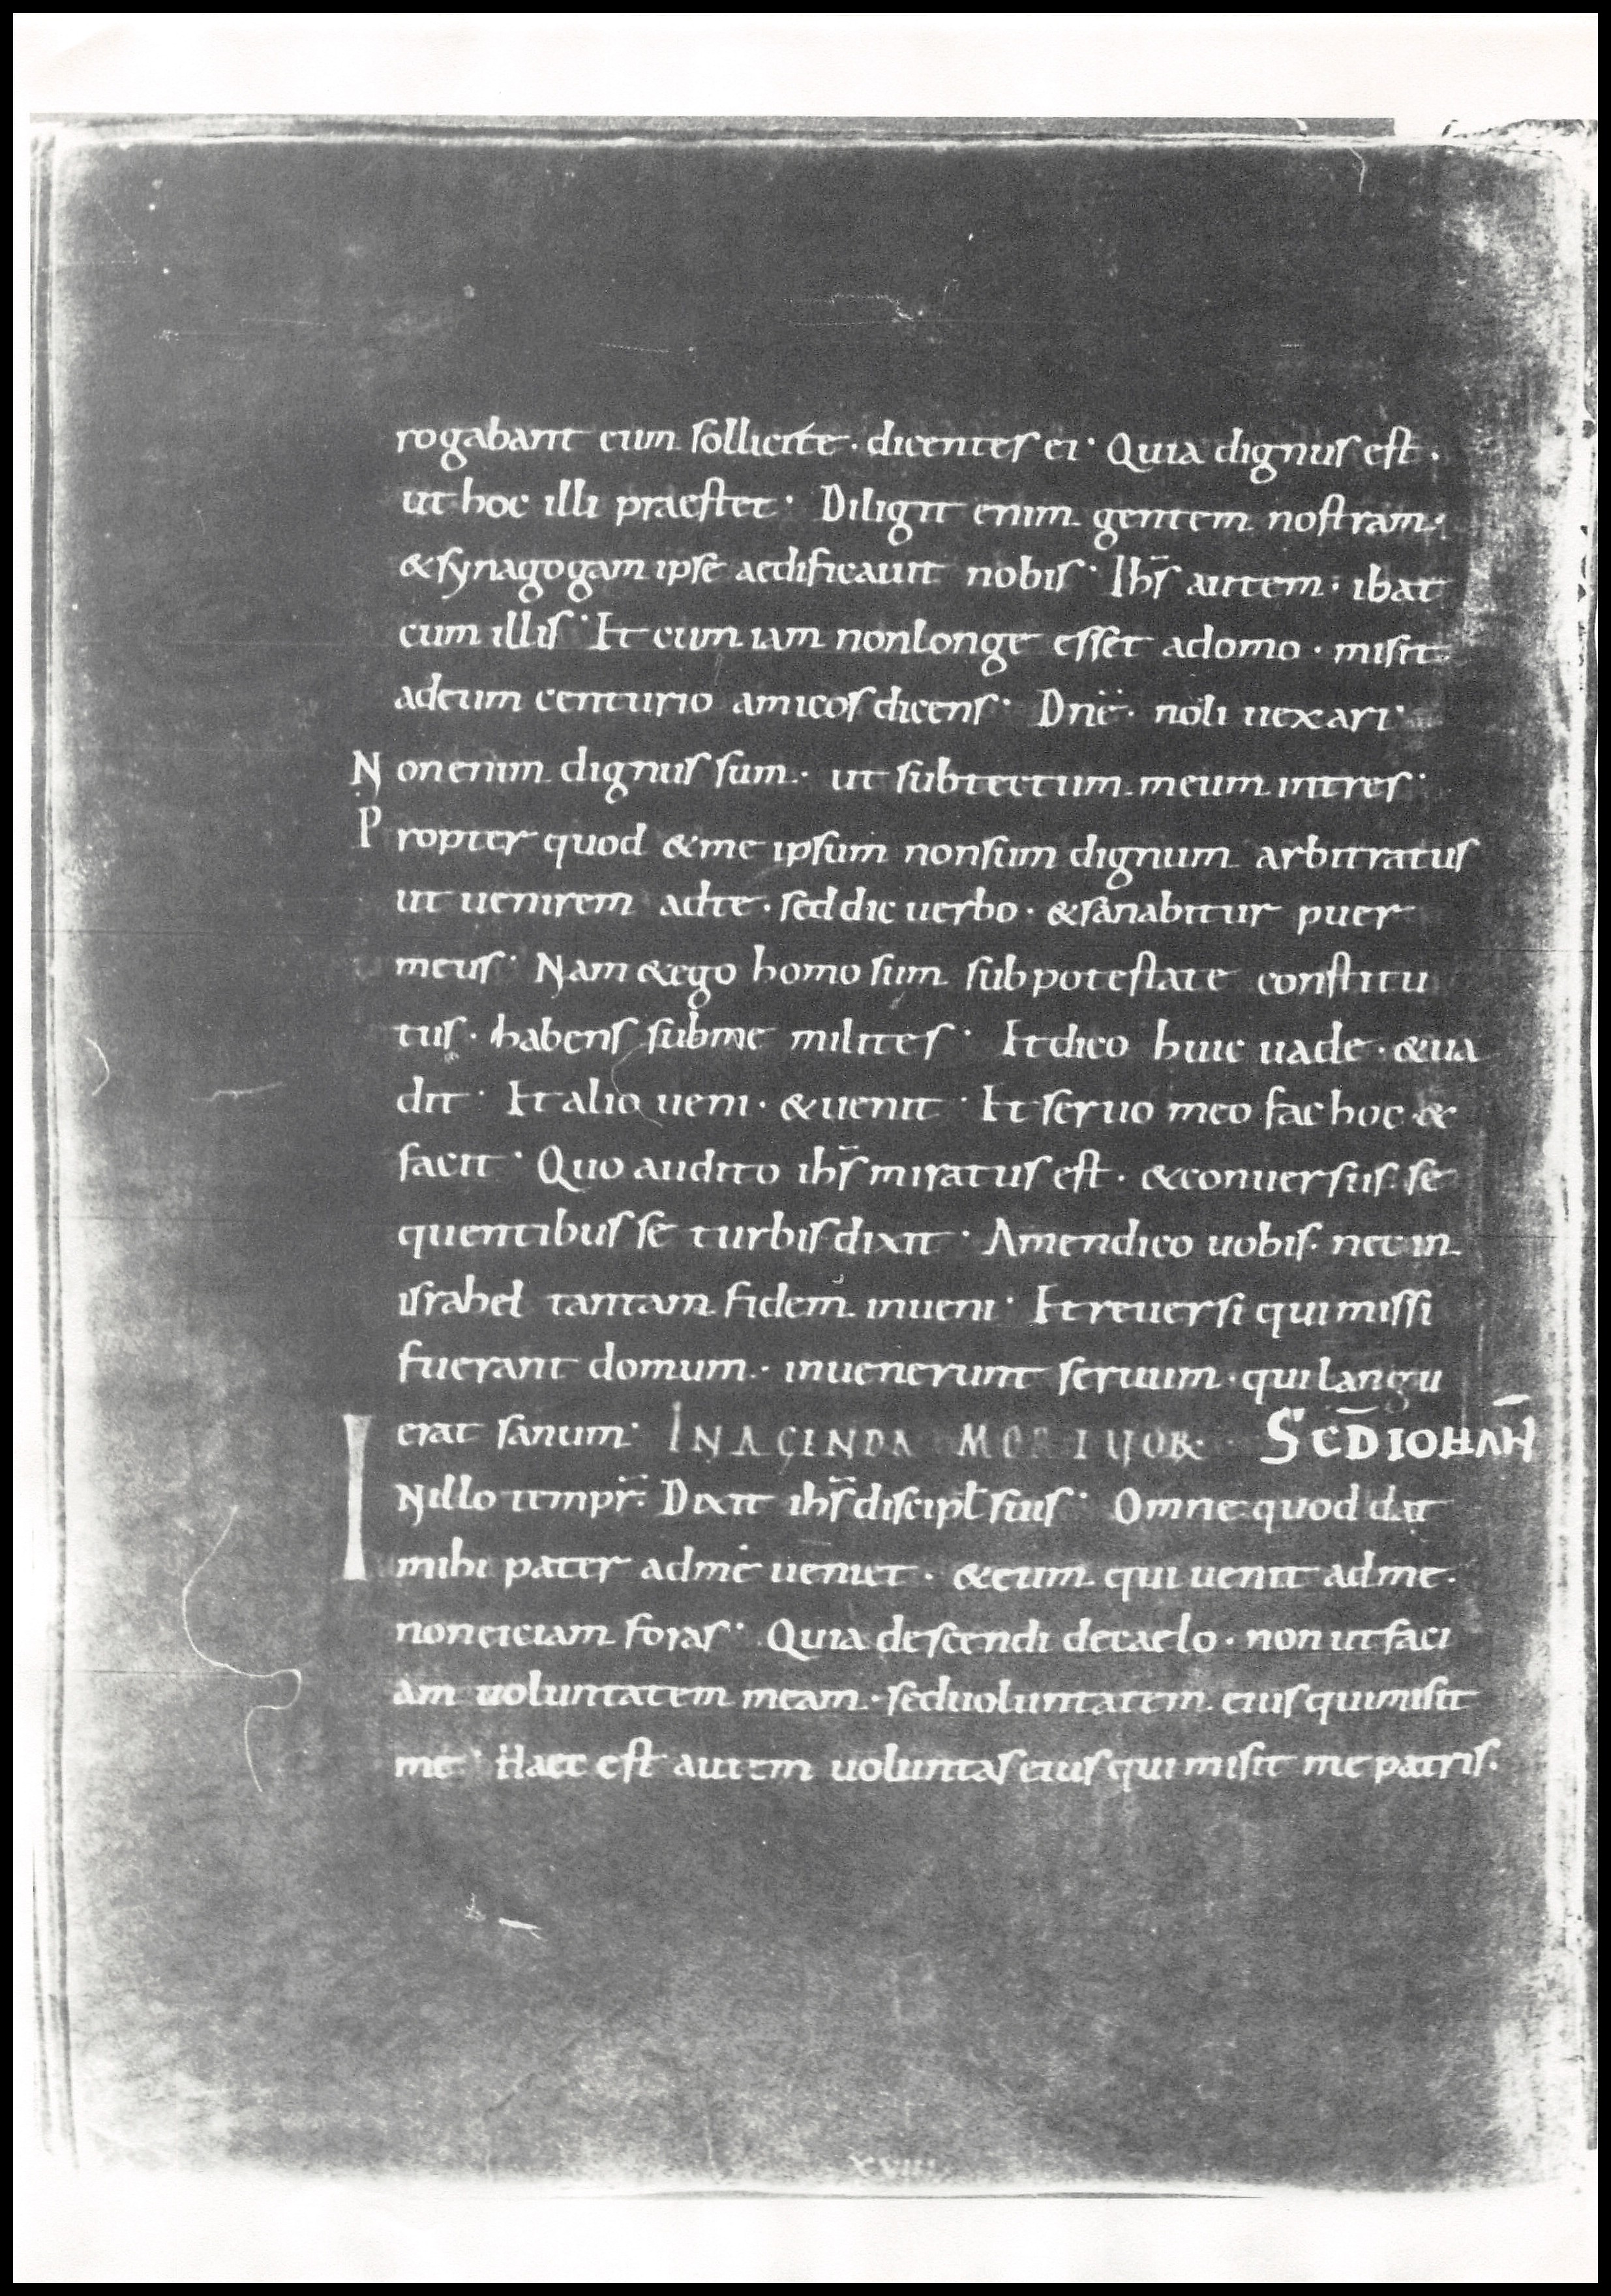 rogabant eum sollicite · dicentes ei · Quia dignus est ·
ut hoc illi praestet · Diligit enim gentem nostram ·
& synagogam ipse aedificauit nobis · Ihs̅ autem · ibat
cum illis · Et cum iam nonlonge esset adomo · misit
adeum centurio amicos dicens · Dn̅e · noli uexari ·
Nonenim dignus sum · ut subtectum meum intres ·
Propter quod &me ipsum nonsum dignum arbitratus
ut uenirem adte · sed dic uerbo · &sanabitur puer
meus · Nam &ego homo sum subpotestate constitu
tus · habens subme milites · Et dico huic uade · &ua
dit · Et alio ueni · &uenit · Et seruo meo fac hoc · &
facit · Quo audito ihs̅ miratus est · &conuersus se
quentibus se turbis dixit · Amendico uobis · nec in
israhel tantam fidem inueni · Et reuersi qui missi
fuerant domum · inuenerunt seruum · qui langu
erat sanum · IN AGENDA MORTUOR SCD̅ IOHAN̅
INillo tempr̅ · Dixit ihs̅ discipl̅ suis · Omne quod dat
mihi pater adme ueniet · &eum qui uenit adme ·
noneiciam foras · Quia descendi decaelo · non ut faci
am uoluntatem meam · seduoluntatem eius quimisit
me · Haec est autem uoluntas eius qui misit me patris ·
XVIII